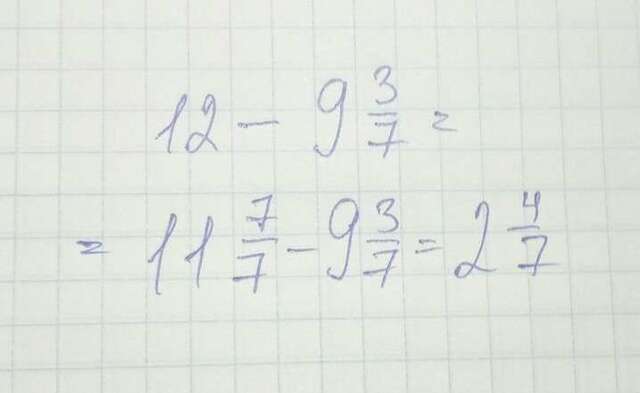 12 - 9 3/7 =
= 11 7/7 - 9 3/7 = 2 4/7